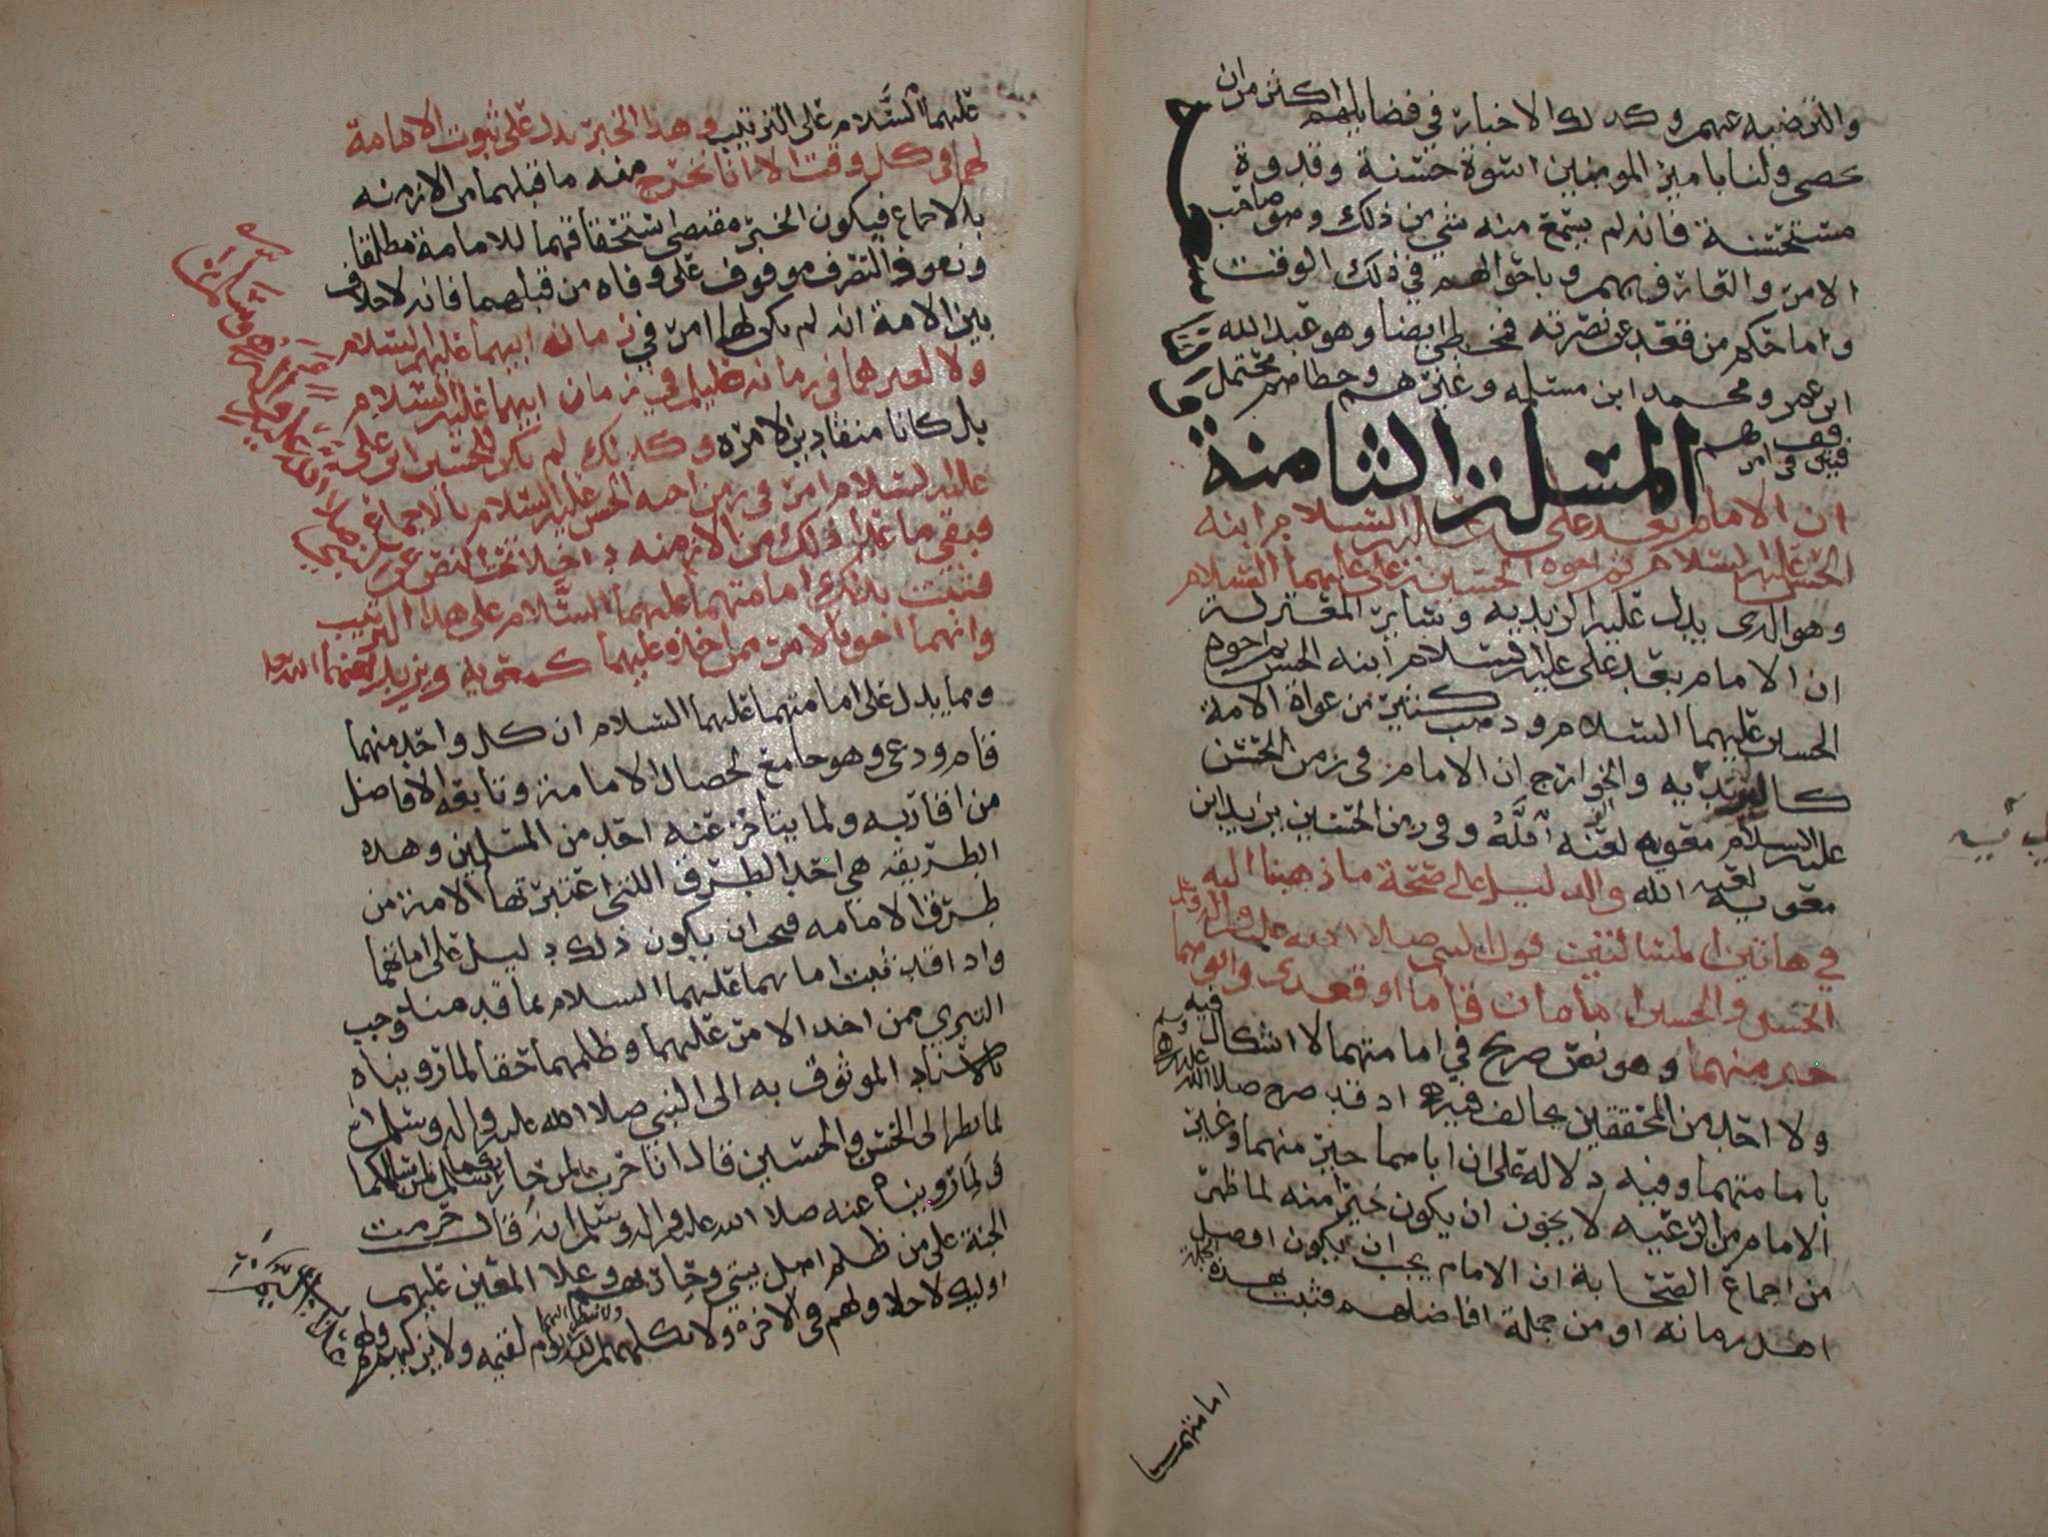 والترضية عنهم وكذلك الاخبار في فضايلهم اكثر من ان
تحصى ولنا بامير المومنين اسوة حسنة وقدوة
مستحسنة فانه لم يسمع منه شي من ذلك وهو صاحب
الامر والعارف بهم وباحوالهم في ذلك الوقت
واما حكم من قعد عن نصرته فمخطي ايضا وهو عبد الله
ابن عمر ومحمد ابن مسلمه وغيرهم وخطاهم محتمل
فيقف في امرهم
المسلة الثامنة
ان الامام بعد علي عليه السلام ابنه
الحسن عليه السلام ثم اخوه الحسين بن علي عليهما السلام
وهو الذي يدل عليه الزيديه وساير المعتزلة
ان الامام بعد علي عليه السلام ابنه الحسن ثم اخوه
الحسين عليهما السلام وذهب كثير من الامة
والخوارج ان الامام في زمن الحسن
عليه السلام معويه لعنه الله وفي زمن الحسين يزيد ابن
معويه لعنه الله والدليل على صحة ما ذهبنا اليه
في هاتين المسالتين قول النبي صلا الله عليه واله وسلم
الحسن والحسين امامان قاما او قعدى وابوهما
خير منهما وهو نص صريح في امامتهما لا اشكال فيه
ولا احد من المحققين يخالف فيه اذ قد صرح صلا الله عليه واله
بامامتهما وفيه دلالة على ان اباهما خير منهما وغير
الامام من الرعيه لا يجوز ان يكون خيرا منه لما ظهر
من اجماع الصحابة ان الامام يجب ان يكون افضل
اهل زمانه او من جملة افاضلهم فثبت بهذه الجملة
امامتهما
عليهما السلام على الترتيب وهذا الخبر يدل على ثبوت الامامة
لهما في كل وقت الا انا نخرج منه ما قبلهما من الازمنه
بالاجماع فيكون الخبر مقتضى استحقاقهما للامامة مطلقا
ونفوذ التصرف موقوف على وفاه من قبلهما فانه لا خلاف
بين الامة انه لم يكن لهما امر في زمانه ابيهما عليهم السلام
ولا لغيرهما في زمانه في زمان ابيهما عليه السلام
بل كانا منقادين لامره وكذلك لم يكن للحسين ابن علي
عليه السلام امر في زمن اخيه الحسن عليه السلام بالاجماع
فبقي ما عدا ذلك من الازمنه داخلا تحت النص عن النبي صلا الله عليه واله وسلم
فثبت بذلك امامتهما عليهما السلام على هذا الترتيب
وانهما احق بالامر ممن اخذه عليهما كمعويه ويزيد لعنهما الله
ومما يدل على امامتهما عليهما السلام ان كل واحد منهما
قام ودعى وهو جامع لخصال الامامة وتابعه الافاضل
من اقاربه ولما يتاخر عنه احد من المسلمين وهذه
الطريقه هي احد الطرق اللتي اعتبرتها الامة من
طرق الامامه فيجب ان يكون ذلك دليل على امامتهما
واذا قد ثبت امامتهما عليهما السلام بما قدمناه وجب
التبري ممن اخذ الامر عليهما وظلمهما حقا لما رويناه
بالاسناد الموثوق به الى النبي صلا الله عليه واله وسلم انه
لما نظر الى الحسن والحسين قال انا حرب لمن حاربكما سلم لمن سالمكما
ولما رويناه عنه صلا الله عليه واله وسلم انه قال حرمت
الجنة على من ظلم اهل بيتي وحاربهم وعلا المعين عليهم
اوليك لا خلاق لهم في الاخرة ولا يكلمهم الله ولا ينظر اليهم يوم القيمه ولا يزكيهم ولهم عذاب اليم